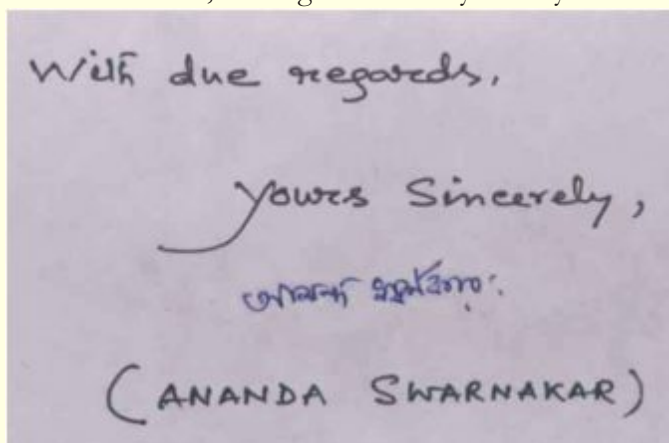 With due regards.
Yours Sincerely,
আনন্দ স্বর্ণকার
(ANANDA SWARNAKAR)